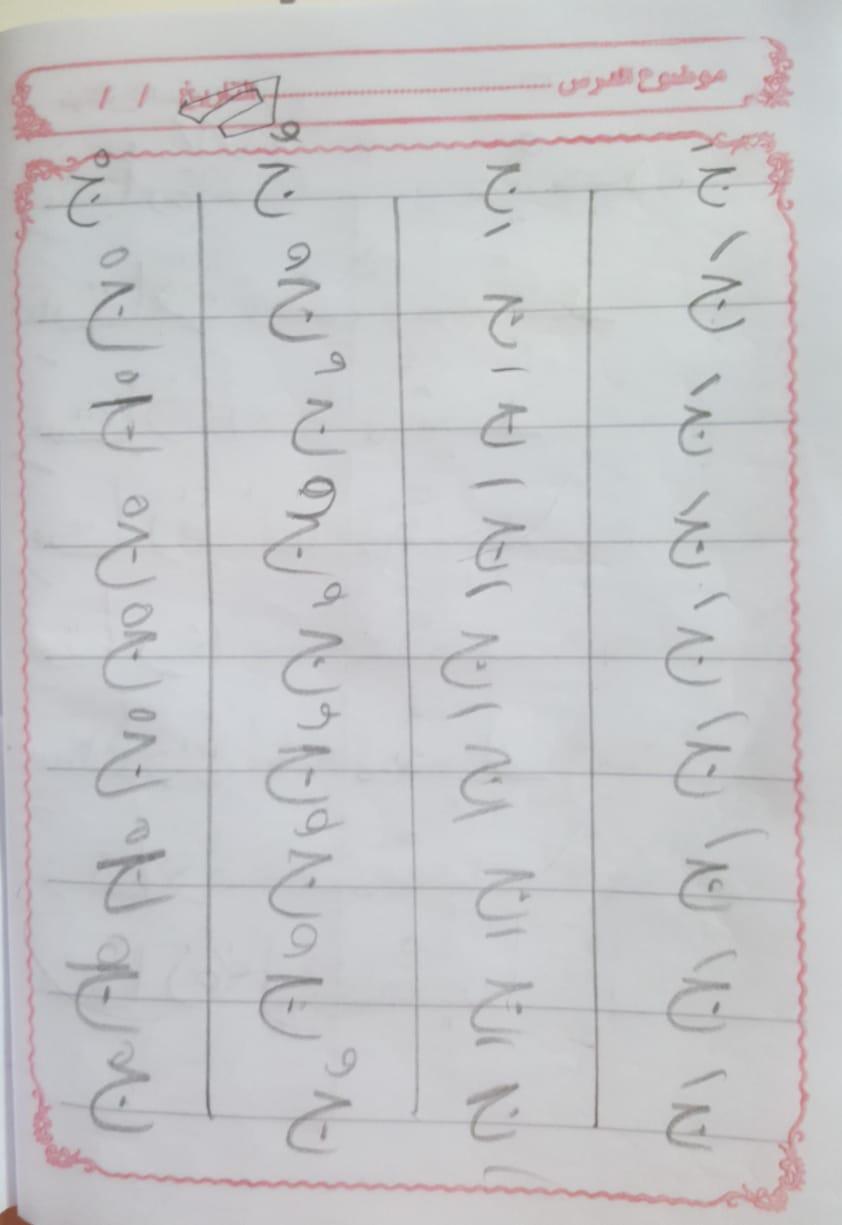 موضوع الدرس ........................ التاريخ / /
جَ جِ جُ جْ
جَ جِ جُ جْ
جَ جِ جُ جْ
جَ جِ جُ جْ
جَ جِ جُ جْ
جَ جِ جُ جْ
جَ جِ جُ جْ
جَ جِ جُ جْ
جَ جِ جُ جْ